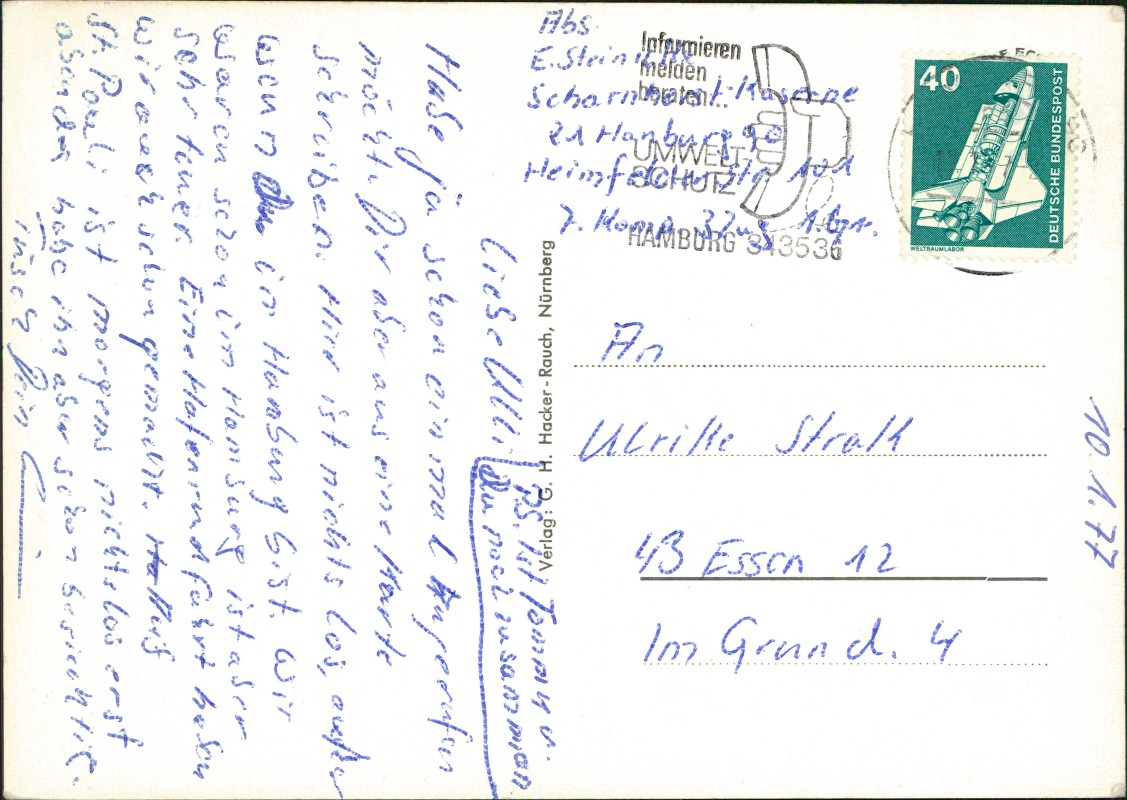 Liebe Ulli!
Habe ja schon einmal Angerufen
möchte Dir aber aus eine Karte
schreiben. Hier ist nichts los, außer
wenn Du in Hamburg bist. Wir
waren schon im Hamburg ist aber
sehr tuner. Eine Hafenrundfahrt haben
wir auch schon gemacht. Auf
St. Pauli ist morgens nichts los erst
abends habe ihn aber schon besichtig.
Tüsch Dein
PS. Ist Tommy u.
Du noch zusammen.
Verlag: G. H. Hacker-Rauch, Nürnberg
Abs.
E. Steinicke
Scharnhorst-Kaserne
21 Hamburg 90
Heimfelderstr. 101
7. Komp. 3 Zug 1. Gr.
Informieren
melden
beraten...
UMWELT-
SCHUTZ
HAMBURG 343530
40
DEUTSCHE BUNDESPOST
WELTRAUMLABOR
An
Ulrike Stralk
43 Essen 12
Im Grund. 4
10.1.77